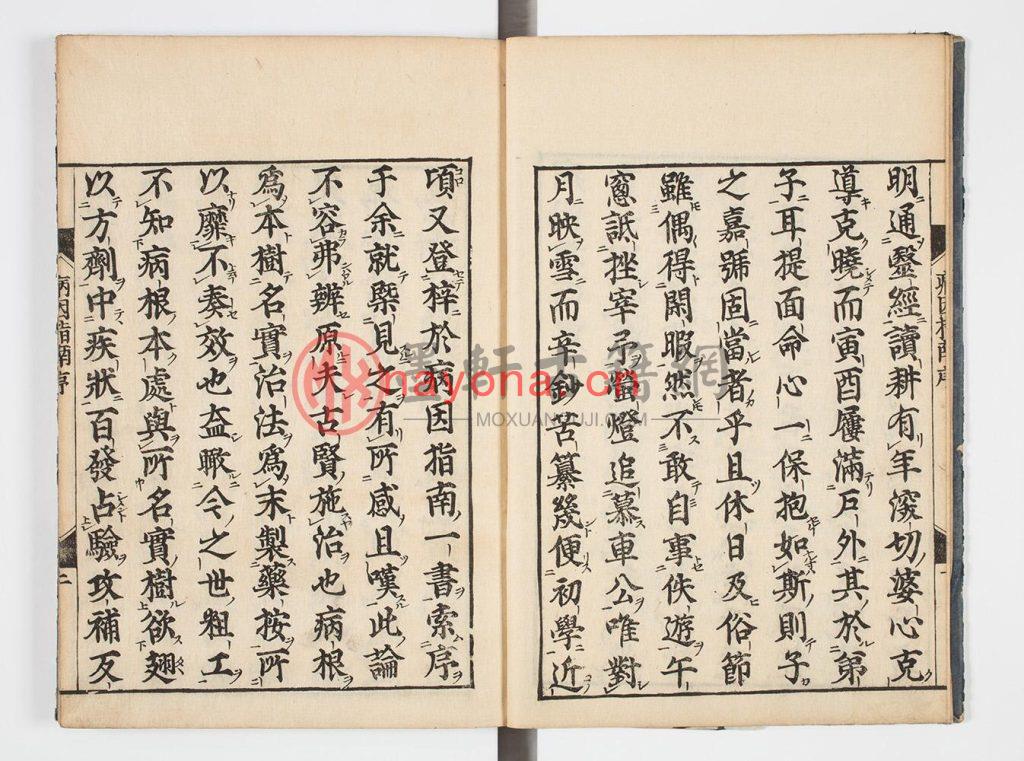 明通鑿經讀耕有年深切婆心克
導克曉而寅酉屨滿戶外其於第
子耳提面命心一保抱如斯則子
之嘉號固當者乎且休日及俗節
雖偶得閑暇然不敢自事佚遊午
窓詆挫宰予 燈追慕車公唯對
月映雪而辛鈔苦纂幾便初學近
頃又登梓於病因指南一書索序
于余就槩見之有所感且嘆此論
不容弗辨原夫古賢施治也病根
爲本樹名實治法爲末製藥按所
以靡不奏效也盍瞰今之世粗工
不知病根本處與所名實樹欲翅
以方劑中疾狀百發占驗攻補反
病因指南序
一
病因指南序
二
墨軒古籍網
nayona.cn
MOXUANGUJI.COM